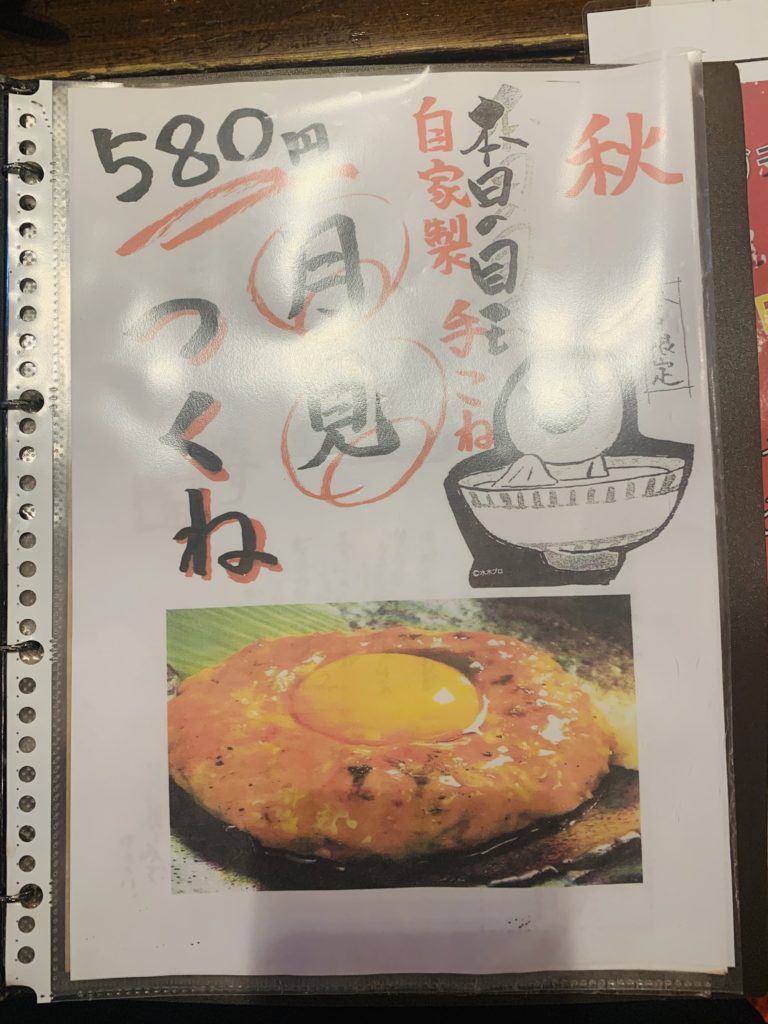 秋
限定
本日の目玉
自家製 手こね
月見
つくね
580円
©水木プロ